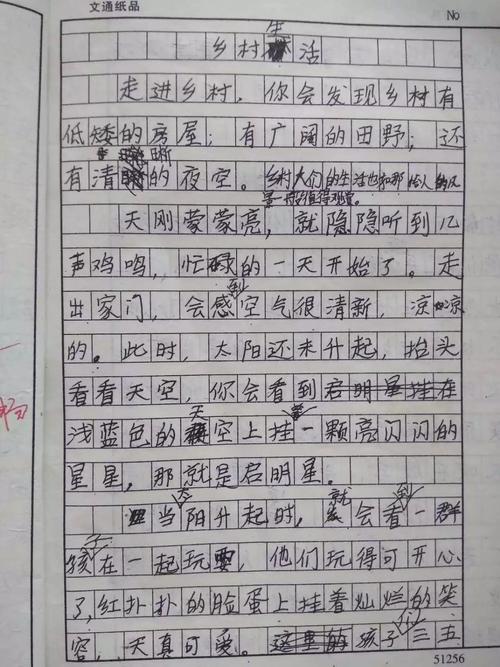 文通纸品 No
乡村生活
走进乡村，你会发现乡村有
低矮的房屋；有广阔的田野；还
有清晰的夜空。乡村人们的生活也和那
一般值得观赏。
天刚蒙蒙亮，就隐隐听到几
声鸡鸣，忙碌的一天开始了。走
出家门，会感到空气很清新，凉凉
的。此时，太阳还未升起，抬头
看看天空，你会看到启明星挂在
浅蓝色的天空上挂着一颗亮闪闪的
星星，那就是启明星。
当太阳升起时，就会看到一群
孩子在一起玩耍，他们玩得可开心
了，红扑扑的脸蛋上挂着灿烂的笑
容，天真可爱。这里的孩子三五
51256